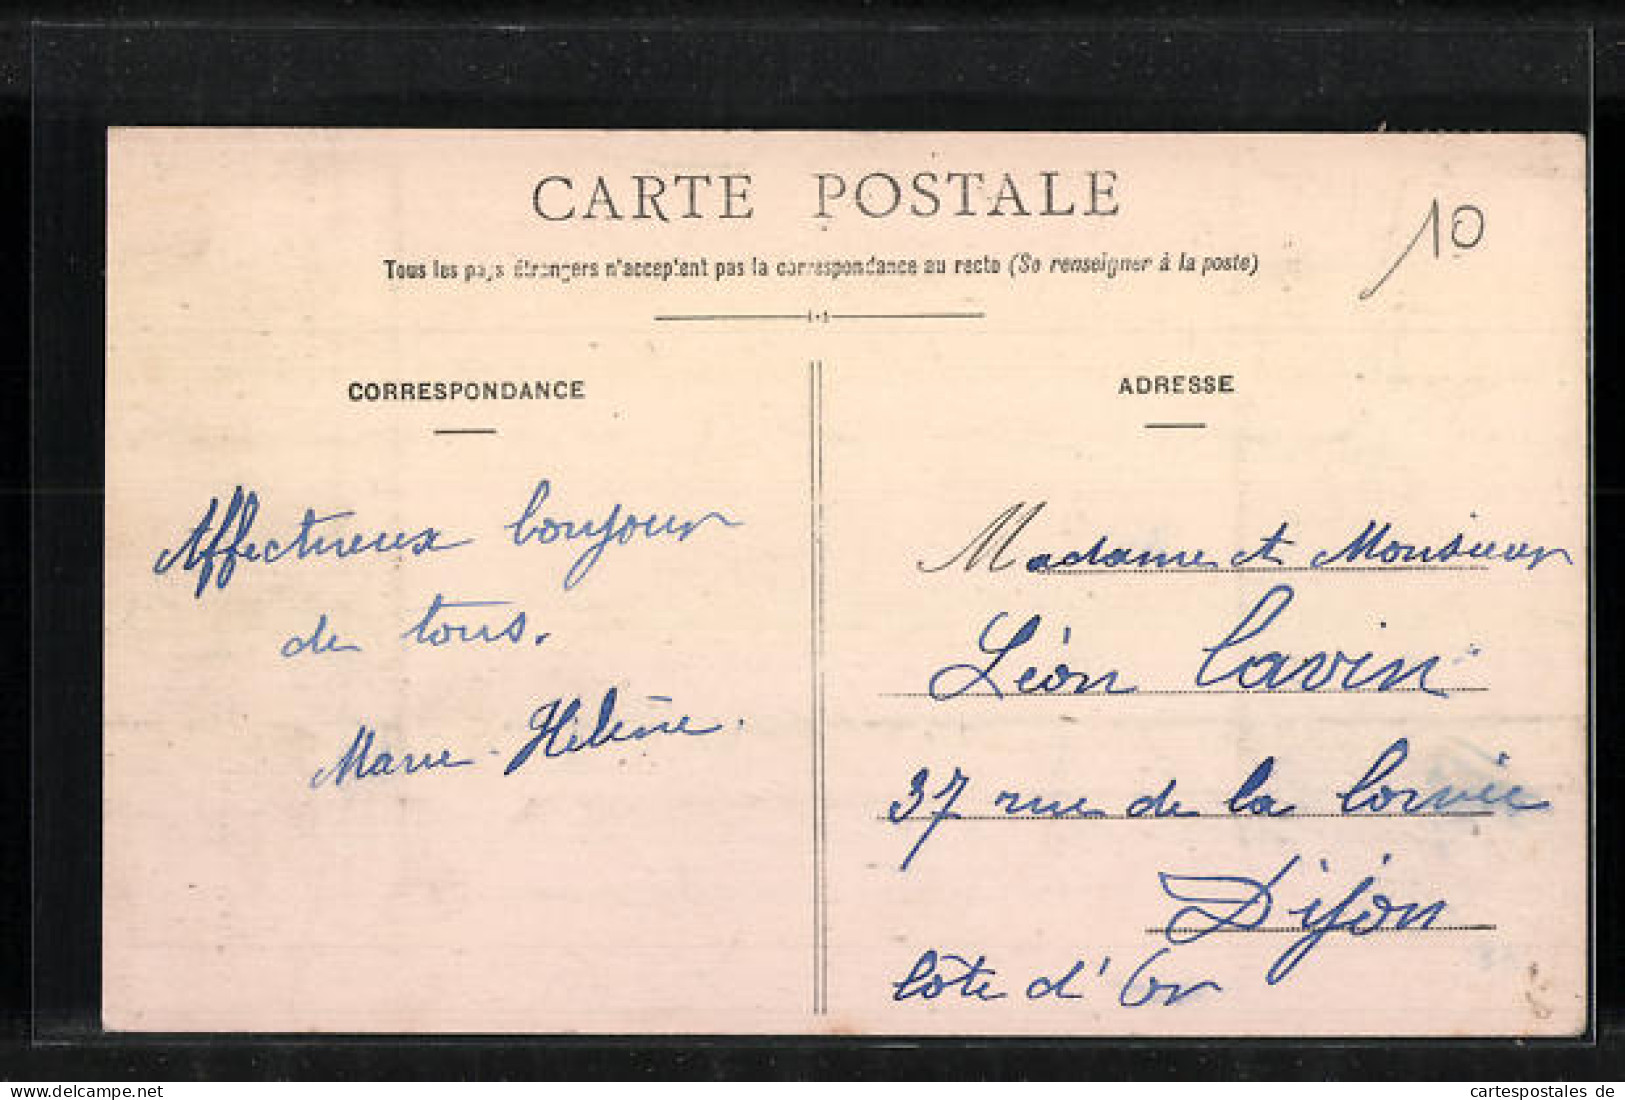 CARTE POSTALE
10
Tous les pays étrangers n'acceptent pas la correspondance au recto (Se renseigner à la poste)
CORRESPONDANCE
Affectueux bonjour
de tous.
Marie-Hélène.
ADRESSE
Madame et Monsieur
Léon Cavin
37 rue de la
Dijon
Côte d'Or
cartespostales de